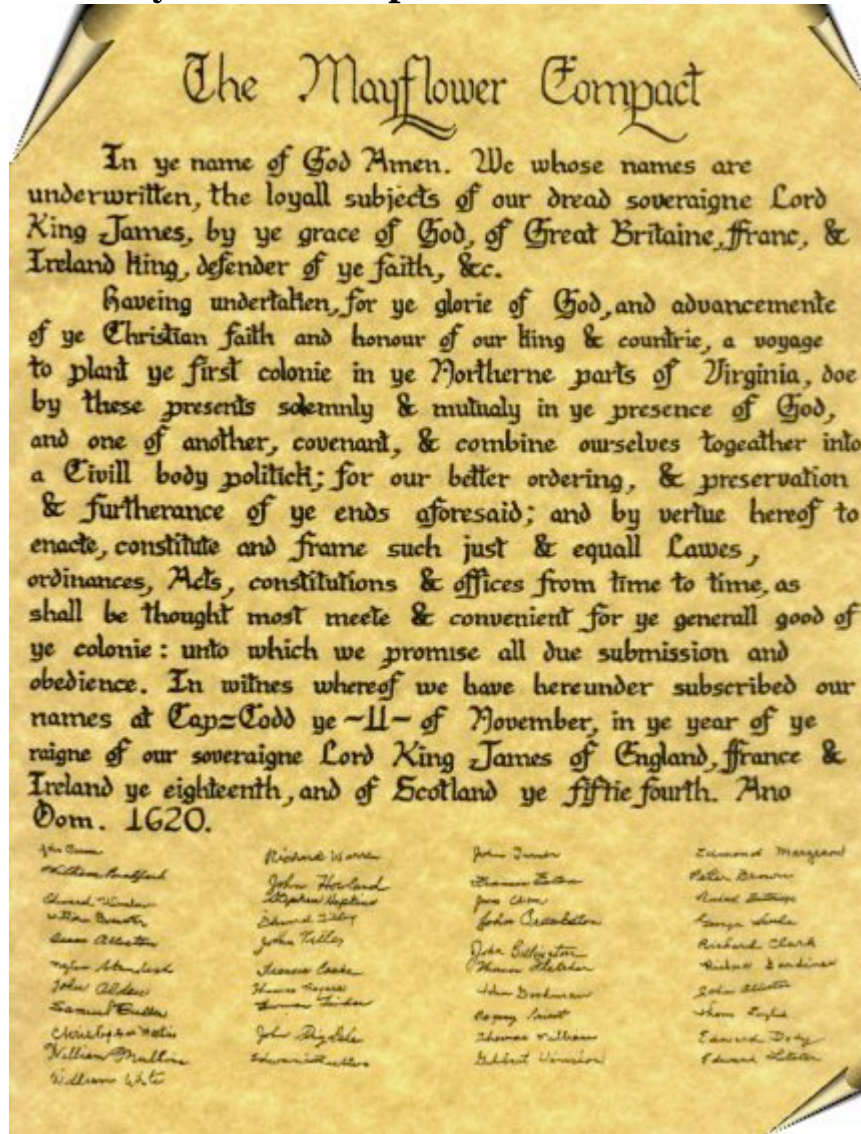 The Mayflower Compact
In ye name of God Amen. We whose names are
underwritten, the loyall subjects of our dread soveraigne Lord
King James, by ye grace of God, of Great Britaine, ffranc, &
Ireland king, defender of ye faith, &c.
Haveing undertaken, for ye glorie of God, and advancemente
of ye Christian faith and honour of our king & countrie, a voyage
to plant ye first colonie in ye Northerne parts of Virginia, doe
by these presents solemnly & mutualy in ye presence of God,
and one of another, covenant, & combine ourselves togeather into
a Civill body politick; for our better ordering, & preservation
& furtherance of ye ends aforesaid; and by vertue hereof to
enacte, constitute and frame such just & equall Lawes,
ordinances, Acts, constitutions & offices from time to time, as
shall be thought most meete & convenient for ye generall good of
ye colonie: unto which we promise all due submission and
obedience. In witnes whereof we have hereunder subscribed our
names at Cap=Codd ye ~11~ of November, in ye year of ye
raigne of our soveraigne Lord King James of England, ffrance &
Ireland ye eighteenth, and of Scotland ye fiftie fourth. Ano
Dom. 1620.
William Bradford
Edward Winslow
John Alden
Samuel Fuller
William Mullins
William White
Richard Warren
John Howland
Stephen Hopkins
Edward Tilley
John Tilley
Francis Cooke
Thomas Rogers
John Turner
Francis Eaton
John Billington
Thomas Williams
Gilbert Winslow
Peter Brown
Richard Clark
Richard Gardiner
John Allerton
Edward Doty